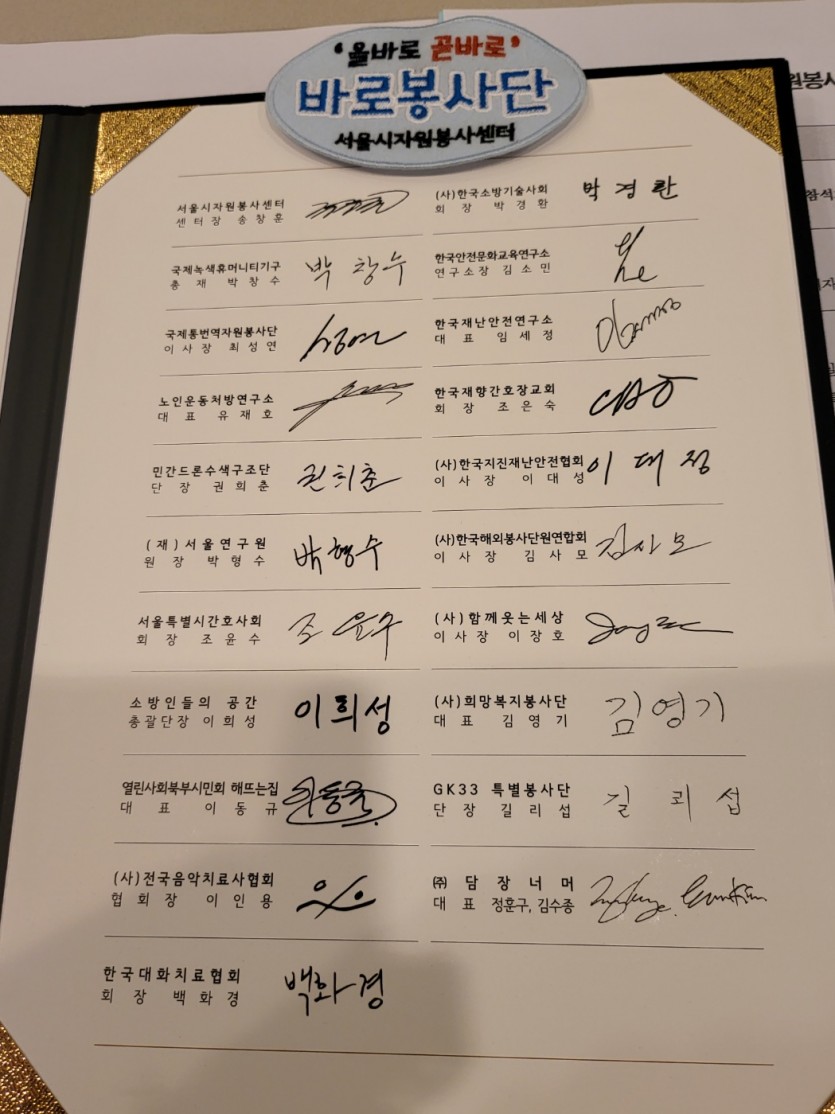 '올바로 곧바로'
바로봉사단
서울시자원봉사센터
서울시자원봉사센터
센터장 송창훈
국제녹색휴머니티기구
총재 박창수
박창수
국제통번역자원봉사단
이사장 최성연
노인운동처방연구소
대표 유재호
민간드론수색구조단
단장 권희춘
권희춘
(재)서울연구원
원장 박형수
박형수
서울특별시간호사회
회장 조윤수
조윤수
소방인들의 공간
총괄단장 이희성
이희성
열린사회북부시민회 해뜨는집
대표 이동규
(사)전국음악치료사협회
협회장 이인용
한국대화치료협회
회장 백화경
백화경
(사)한국소방기술사회
회장 박경환
박경환
한국안전문화교육연구소
연구소장 김소민
한국재난안전연구소
대표 임세정
한국재향간호장교회
회장 조은숙
(사)한국지진재난안전협회
이사장 이대성
이대성
(사)한국해외봉사단원연합회
이사장 김사모
김사모
(사)함께웃는세상
이사장 이장호
(사)희망복지봉사단
대표 김영기
김영기
GK33 특별봉사단
단장 길리섭
길리섭
㈜담장너머
대표 정훈구, 김수종
원봉사
참석